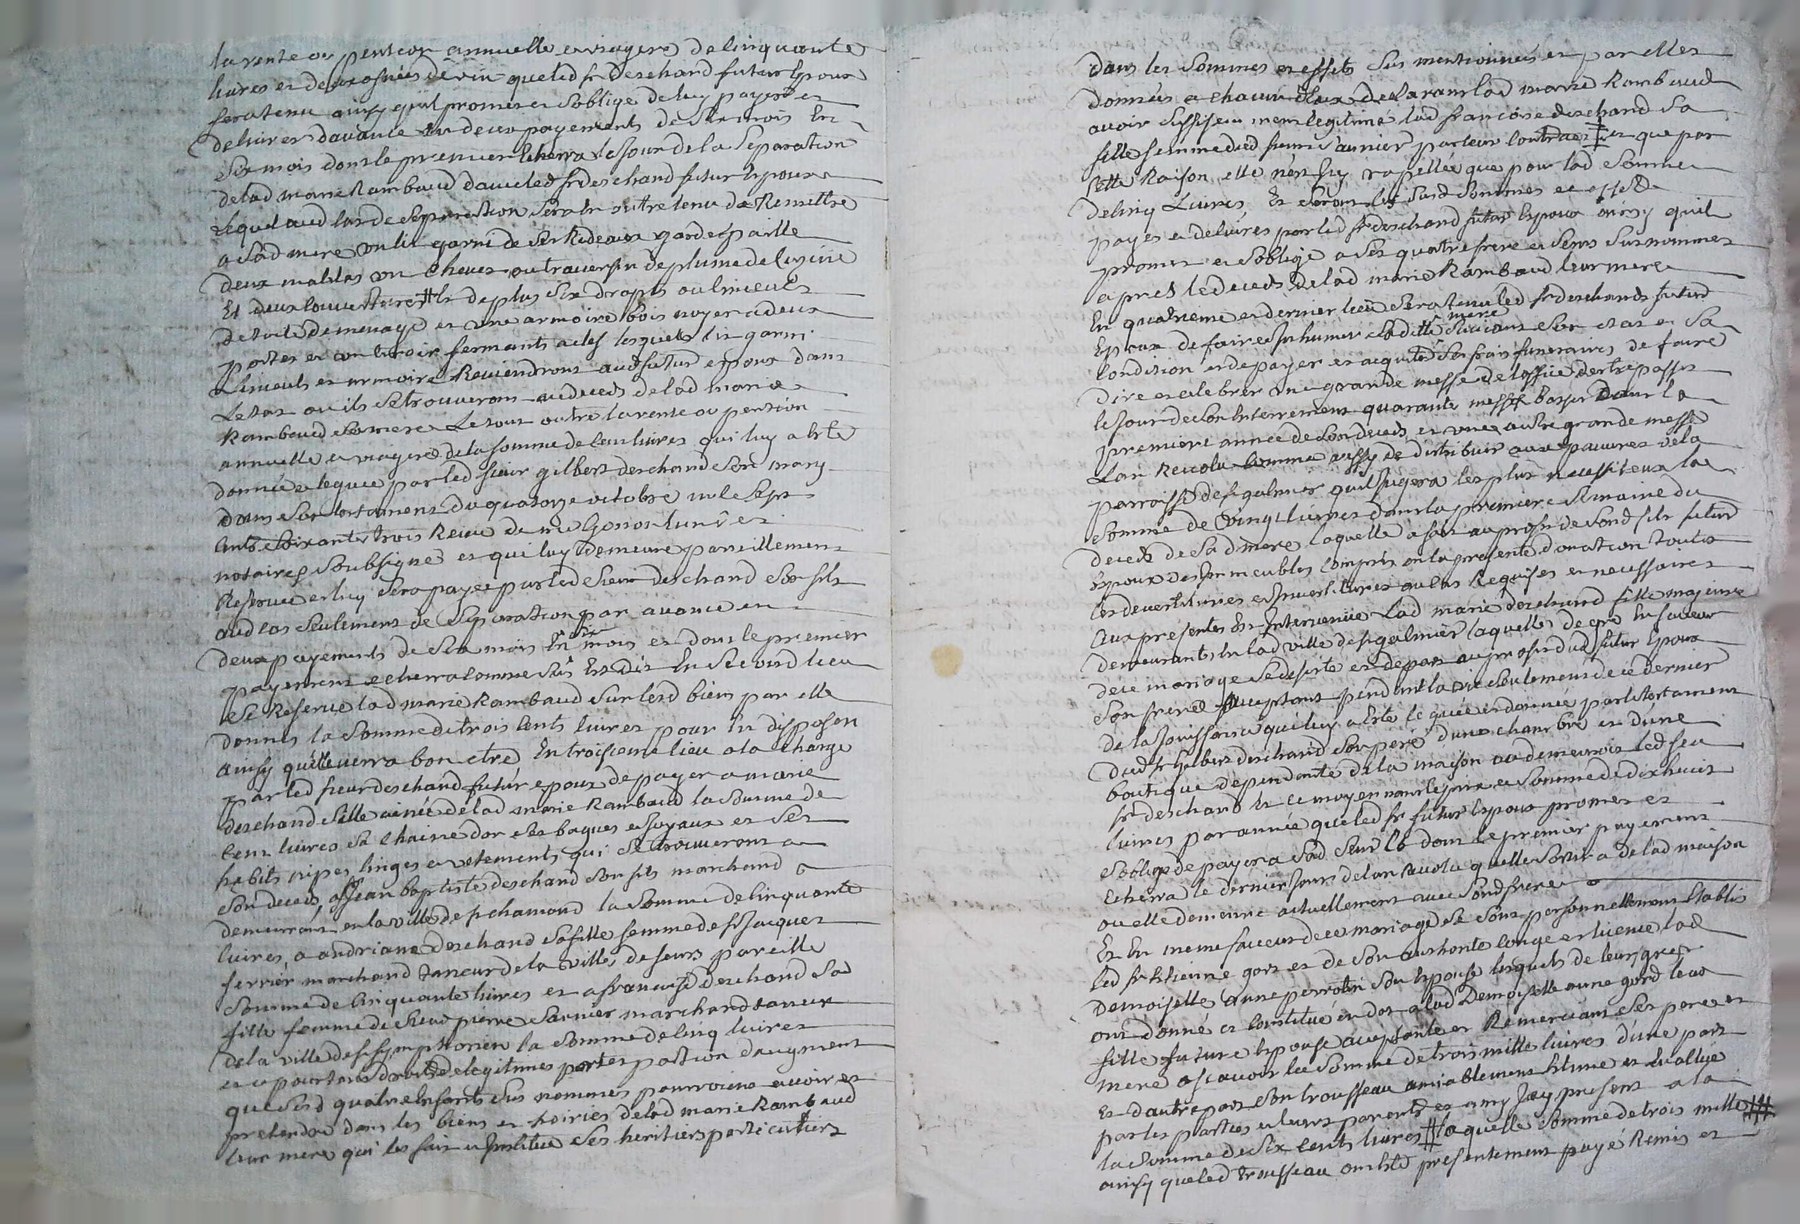 la rente ou pention annuelle et viagere de cinquante
livres et de deux asnées de vin que led sr deschand futur Epoux
sera tenu ainsy quil promet et soblige de luy payer et
delivrer davance en deux payements de six mois En
six mois dont le premier Echerra le jour de la separation
de lad marie Rambaud davec led sr deschand futur Epoux
lequel aud cas de separation sera En outre tenu de Remettre
a sad mere un lit garni de ses Rideaux garde paille
deux matelas un Chevet ou traversin de plume de
Et deux couvertures # Et de plus six draps ou linceuls
de toile de menage et une armoire bois noyer a deux
portes et un tiroir fermants a clef lesquels lit garni
Linceuls et armoire Reviendront aud futur epoux dans
Letat ou ils se trouveront au deceds de lad marie
Rambaud sa mere Le tout outre la rente ou pention
annuelle et viagere de la somme de cent livres qui luy a Eté
donnée et leguée par led sieur gilbert deschand son mary
dans son testament du quatorze octobre mil sept
cents soixante trois Receu de me Gonon lun des
notaires soubsigné et qui luy demeure pareillement
Reservée et luy sera payée par led sieur deschand son fils
aud cas seulement de separation par avance en
deux payements de six mois En six mois et dont le premier
payement echerra comme sus Est dit En second lieu
se Reserve lad marie Rambaud sur lesd biens par elle
donnés la somme de trois cents livres pour En disposer
ainsy quelle verra bon etre En troisieme lieu a la charge
par led sieur deschand futur epoux de payer a marie
deschand fille ainée de lad marie Rambaud la somme de
cent livres sa chaine dor ses bagues et joyaux et ses
habits nipes linges et vetements qui se trouveront a
son deceds a sr jean baptiste deschand son fils marchand
demeurant en la ville de st chamond la somme de cinquante
livres, a andriane deschand sa fille femme de sr jacques
ferrier marchand taneur de la ville de feurs pareille
somme de cinquante livres et a francoise deschand sa
fille femme de sieur pierre saunier marchand taneur
de la ville de st symphorien la somme de cinq livres
et ce pour tous droits de legitimes partes portion daugment
que sesd quatre enfants sus nommes pourroient avoir et
pretendre dans les biens et hoiries de lad marie Rambaud
leur mere qui les fait et Institue ses heritiers particuliers
dans les sommes et effets sus mentionnés et par elles
donnés a chacun deux declarant lad marie Rambaud
avoir suffisamment legitime lad francoise deschand sa
fille femme dud sieur saunier par leur contract # et que par
cette Raison elle nest Icy rapellée que pour lad somme
de cinq Livres Et seront les susd sommes et effets
payes et delivres par led sr deschand futur Epoux ainsy quil
promet et soblige a ses quatre frere et seurs susnommes
apres le deceds de lad marie Rambaud leur mere
En quatrieme et dernier lieu sera tenu led sr deschand futur
Epoux de faire Inhumer lad mere suivant son etat et sa
condition et de payer et acquiter ses frais funeraires de faire
dire et celebrer une grande messe de loffice des trepasses
le jour de son Enterrement quarante messes basses dans la
premiere année de son deceds et une autre grande messe
Lan Revolu comme aussy de distribuer aux pauvres de la
parroisse de st galmier quil jugera les plus necessiteux la
somme de vingt livres dans la premiere semaine du
deceds de sad mere laquelle a fait au profit de sond fils futur
Epoux des Immeubles compris en la presente donation toutes
les devestitures et Investitures au cas Requises et necessaires
Aux presentes Est Intervenüe Lad marie deschand fille majeure
demeurante En lad ville de st galmier laquelle de gré En faveur
de ce mariage se desiste et depart au profit dud futur Epoux
son frere acceptant pendant la vie seulement de ce dernier
de la jouissance qui luy a Eté leguée et donnée par le testament
dud sr gilbert deschand son pere dune chambre et dune
boutique dependante de la maison ou demeuroit led feu
sr deschand Et ce moyennant le prix et somme de dix huit
livres par année que led sr futur Epoux promet et
soblige de payer a sad seur Et dont le premier payement
Echerra le dernier jour de lan revolu quelle sortira de lad maison
ou elle demeure actuellement avec sond frere
Et En meme faveur de ce mariage se sont personnellement Etablis
led sr Etienne gord et de son authorité congé et licence lad
Demoiselle anne perrotin son Epouse lesquels de leurs gres
ont donné et constitué en dot a lad Demoiselle anne gord leur
fille future Epouse acceptante et Remerciant ses pere et
mere ascavoir la somme de trois mille livres dune part
Et dautre part son trousseau amiablement Estimé et Evallué
par les parties et leurs parents et amy Icy present a la
la somme de six cents livres # laquelle somme de trois mille #
ainsy que led trousseau ont Eté presentement payé Remis et